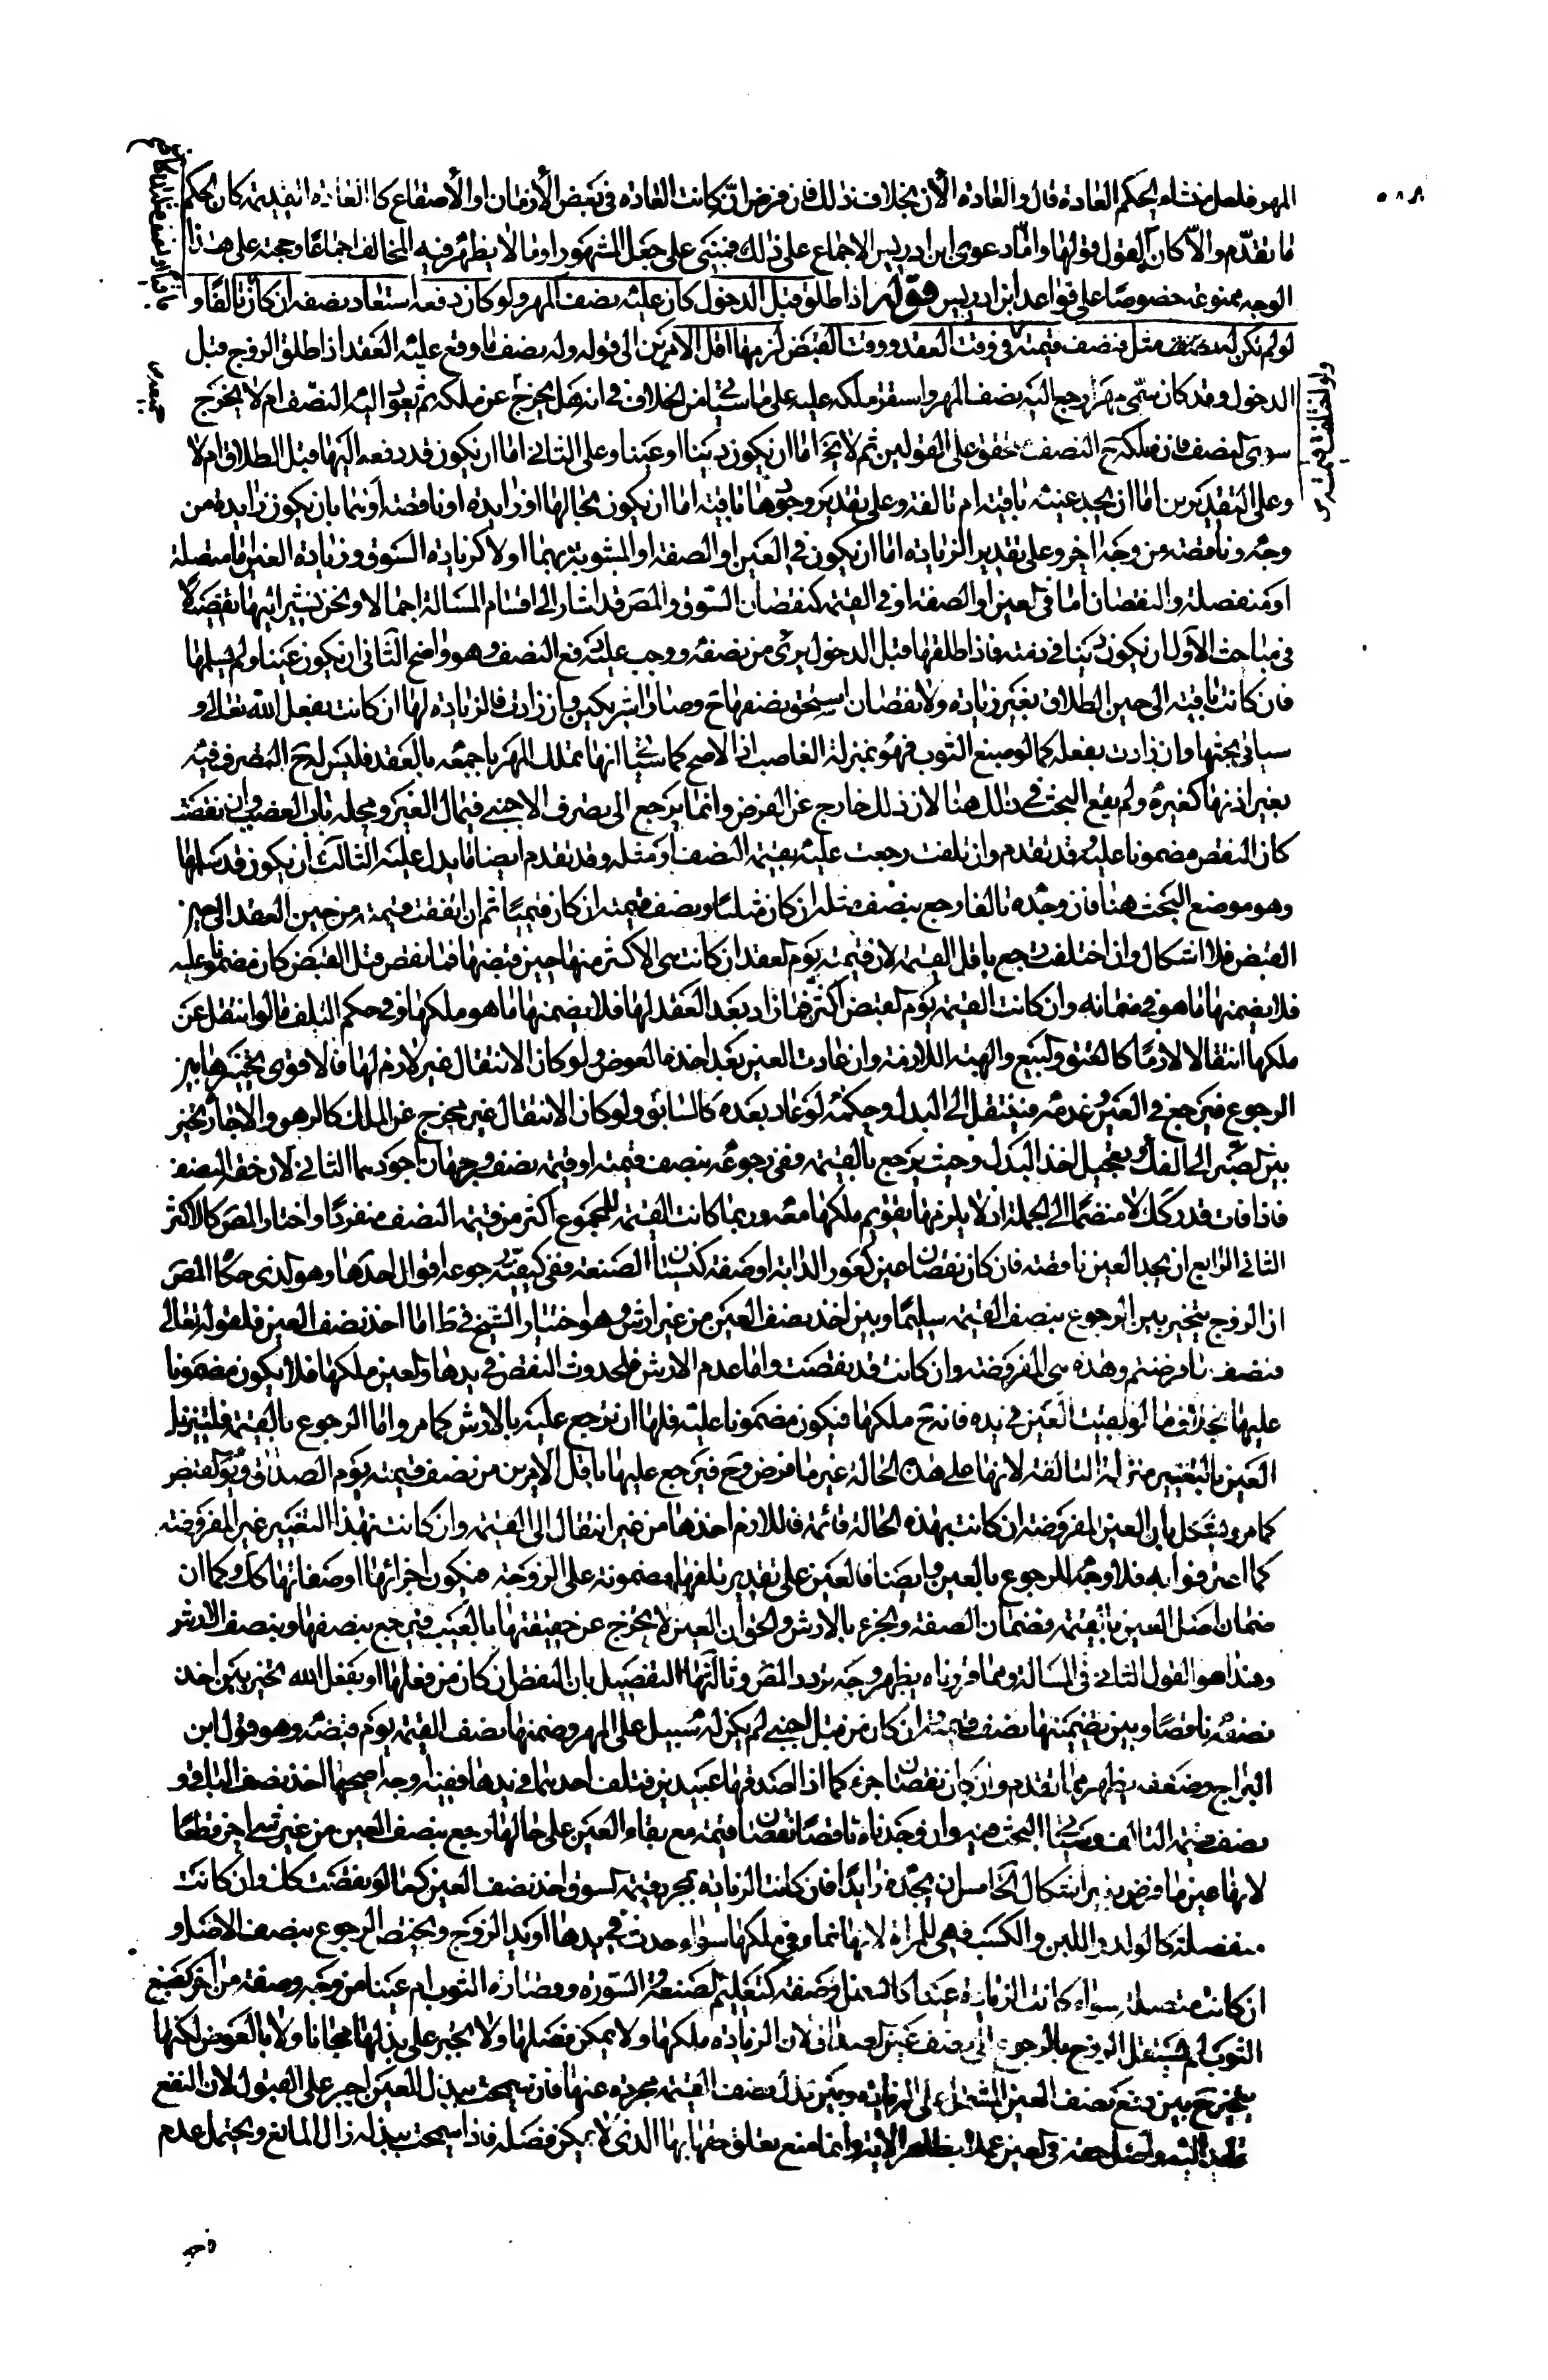 المهر فلعل منشاء الحكم العادة قال والعادة الآن بخلاف ذلك فان فرض ان كانت العادة فى بعض الأزمان او الأصقاع كالعادة القديمة كان الحكم
ما تقدّم والاّ كان القول قولها وامّا دعوى ابن ادريس الاجماع على ذلك فمبنى على جعل المشهور او ما لا يظهر فيه المخالف اجماعًا وحجته على هذا
الوجه ممنوعة خصوصًا على قواعد ابن ادريس قوله اذا طلق قبل الدخول كان عليه نصف المهر ولو كان دفعه استعاد نصفه ان كان تالفًا و
لو لم يكن له مثل فنصف قيمته فى وقت العقد ووقت القبض لزمها اقل الامرين الى قوله وله نصف ما وقع عليه العقد اذا طلق الزوج قبل
الدخول وقد كان سمّى مهرًا رجع اليه نصف المهر واستقر ملكه عليه على ما سياتى من الخلاف فى انه هل يخرج عن ملكه ثم يعود اليه النصف ام لا يخرج
سوى النصف فان ملكه ح النصف متحقق على القولين ثم لا يخ اما ان يكون دينا او عينا وعلى الثانى اما ان يكون قد دفعه اليها قبل الطلاق ام لا
وعلى التقديرين اما ان يجد عينه باقية ام تالفة وعلى تقدير وجودها باقية اما ان يكون بحالها او زايدة او ناقصة او بهما بان يكون زايدة من
وجه وناقصة من وجه اخر وعلى تقدير الزيادة اما ان يكون فى العين او الصفة او المشوبة بهما او لا كزيادة السوق وزيادة العين اما متصلة
او منفصلة والنقصان اما فى العين او الصفة او فى القيمة كنقصان السوق والمص قد اشار الى اقسام المسالة اجمالا ونحن نشير اليها تفصيلًا
فى مباحث الأول ان يكون دينا فى ذمته فاذا طلقها قبل الدخول برئ من نصفه ووجب عليه دفع النصف وهو واضح الثانى ان يكون عينا ولم يسلمها
فان كانت باقية الى حين الطلاق بغير زيادة ولا نقصان استحق نصفها ح وصارا شريكين وان زادت فالزيادة لها ان كانت بفعل الله تعالى و
سياتى بحثها وان زادت بفعله كما لو صبغ الثوب فهو بمنزلة الغاصب اذ الاصح كما سياتى انها تملك المهر باجمعه بالعقد فليس له ح التصرف فيه
بغير اذنها كغيره ولم يقع البحث فى ذلك هنا لان ذلك خارج عن الفرض وانما يرجع الى تصرف الاجنبى فى مال الغير ومحله باب الغصب وان نقصت
كان النقص مضمونا عليه وقد تقدم وان تلفت رجعت عليه بقيمة النصف او مثله وقد تقدم ايضا ما يدل عليه الثالث ان يكون قد سلمها
وهو موضع البحث هنا فان وجده تالفا رجع بنصف مثله ان كان مثليًا ونصف قيمته ان كان قيميًا ثم ان اتفقت قيمته من حين العقد الى حين
القبض فلا اشكال وان اختلفت رجع باقل القيمة لان قيمته يوم العقد ان كانت هى الاكثر منها حين قبضها فما نقص قبل القبض كان مضمونا عليه
فلا يضمنها ما هو فى ضمانه وان كانت القيمة يوم القبض اكثر فما زاد بعد العقد لها فلا يضمنها ما هو ملكها وفى حكم التلف ما لو انتقل عن
ملكها انتقالا لازمًا كالعتق والبيع والهبة اللازمة وان عادت العين بعد اخذه العوض ولو كان الانتقال غير لازم لها فالاقوى تخيرها بين
الرجوع فيرجع فى العين وعدمه فينتقل الى البدل وحكمه لو عاد بعده كالسابق ولو كان الانتقال غير مخرج عن الملك كالرهن والاجارة تخير
بين الصبر الى الفك وتعجيل اخذ البدل وحيث يرجع بالقيمة ففى رجوعه بنصف قيمته او قيمة نصفه وجهان اجودهما الثانى لان حقه النصف
فاذا فات قدر كك لا منضما الى الجملة اذ لا يلزمها تقويم ملكها معه وربما كانت القيمة للمجموع اكثر من قيمة النصف منفردًا واختار المص كالاكثر
الثانى الرابع ان يجد العين ناقصة فان كان نقصان عين كعور الدابة او صفة كنسيان الصنعة ففى كيفية رجوعه اقوال احدها وهو الذى حكاه المص
ان الزوج يتخير بين الرجوع بنصف القيمة سليمًا وبين اخذ نصف العين من غير ارش وهو اختيار الشيخ فى ط اما اخذ نصف العين فلقوله تعالى
فنصف ما فرضتم وهذه هى المفروضة وان كانت قد نقصت واما عدم الارش فلحدوث النقص فى يدها والعين ملكها فلا يكون مضمونا
عليها بخلاف ما لو بقيت العين فى يده فانه ح ملكها فيكون مضمونا عليه فلها ان ترجع عليه بالارش كما مر واما الرجوع بالقيمة فلتنزيل
العين بالتغيير منزلة التالفة لانها على هذه الحالة غير ما فرض وح فيرجع عليها باقل الامرين من نصف قيمته يوم الصداق ويوم القبض
كما مر ويشكل بان العين المفروضة ان كانت بهذه الحالة قائمة فاللازم اخذها من غير انتقال الى القيمة وان كانت بهذا التغيير غير المفروضة
كما اعترفوا به فلا وجه للرجوع بالعين وايضا فالعين على تقدير تلفها مضمونة على الزوجة فيكون اجزائها او صفاتها كك وكما ان
ضمان اصل العين بالقيمة فضمان الصفة والجزء بالارش والحق ان العين لا يخرج عن حقيقتها بالعيب فيرجع بنصفها وبنصف الارش
وهذا هو القول الثانى فى المسالة ومما قررناه يظهر وجه تردد المص وثالثها التفصيل بان النقص ان كان من فعلها او بفعل الله تخير بين اخذ
نصفه ناقصًا وبين تضمينها نصف قيمته وان كان من قبل اجنبى لم يكن له سبيل على المهر وضمنها نصف القيمة يوم قبضه وهو قول ابن
البراج وضعفه يظهر مما تقدم وان كان نقصان جزء كما اذا اصدقها عبيدين فتلف احدهما فى يدها ففيه اوجه اصحها اخذ نصف الباقى و
نصف قيمة التالف وسياتى البحث فيه وان وجدناه ناقصًا نقصان قيمة مع بقاء العين على حالها رجع بنصف العين من غير شئ اخر قطعًا
لانها عين ما فرض بغير اشكال الخامس ان يجده زايدًا فان كانت الزيادة بمجرد قيمة السوق اخذ نصف العين كما لو نقصت كك وان كانت
منفصلة كالولد واللبن والكسب فهى للمراة لانها نماء فى ملكها سواء حدثت فى يدها او يد الزوج ويختص الرجوع بنصف الاصل و
ان كانت متصلة سواء كانت الزيادة عينا كالسمن او صفة كتعليم الصنعة والسورة وقصارة الثوب ام عينا من وجه وصفة من اخر كصبغ
الثوب لم يستقل الزوج بالرجوع الى نصف عين الصداق لان الزيادة ملكها ولا يمكن فصلها ولا تجبر على بذلها مجانا ولا بالعوض لكنها
يتخير ح بين دفع نصف العين المشتمل على الزيادة وبين بذل نصف القيمة مجردة عنها فان سمحت ببذل العين اجبر على القبول لان النفع
عايد اليه واصل حقه فى العين عملا بظاهر الاية وانما منع تعلق حقها بها الذى لا يمكن فصله فاذا سمحت ببذله زال المانع ويحتمل عدم